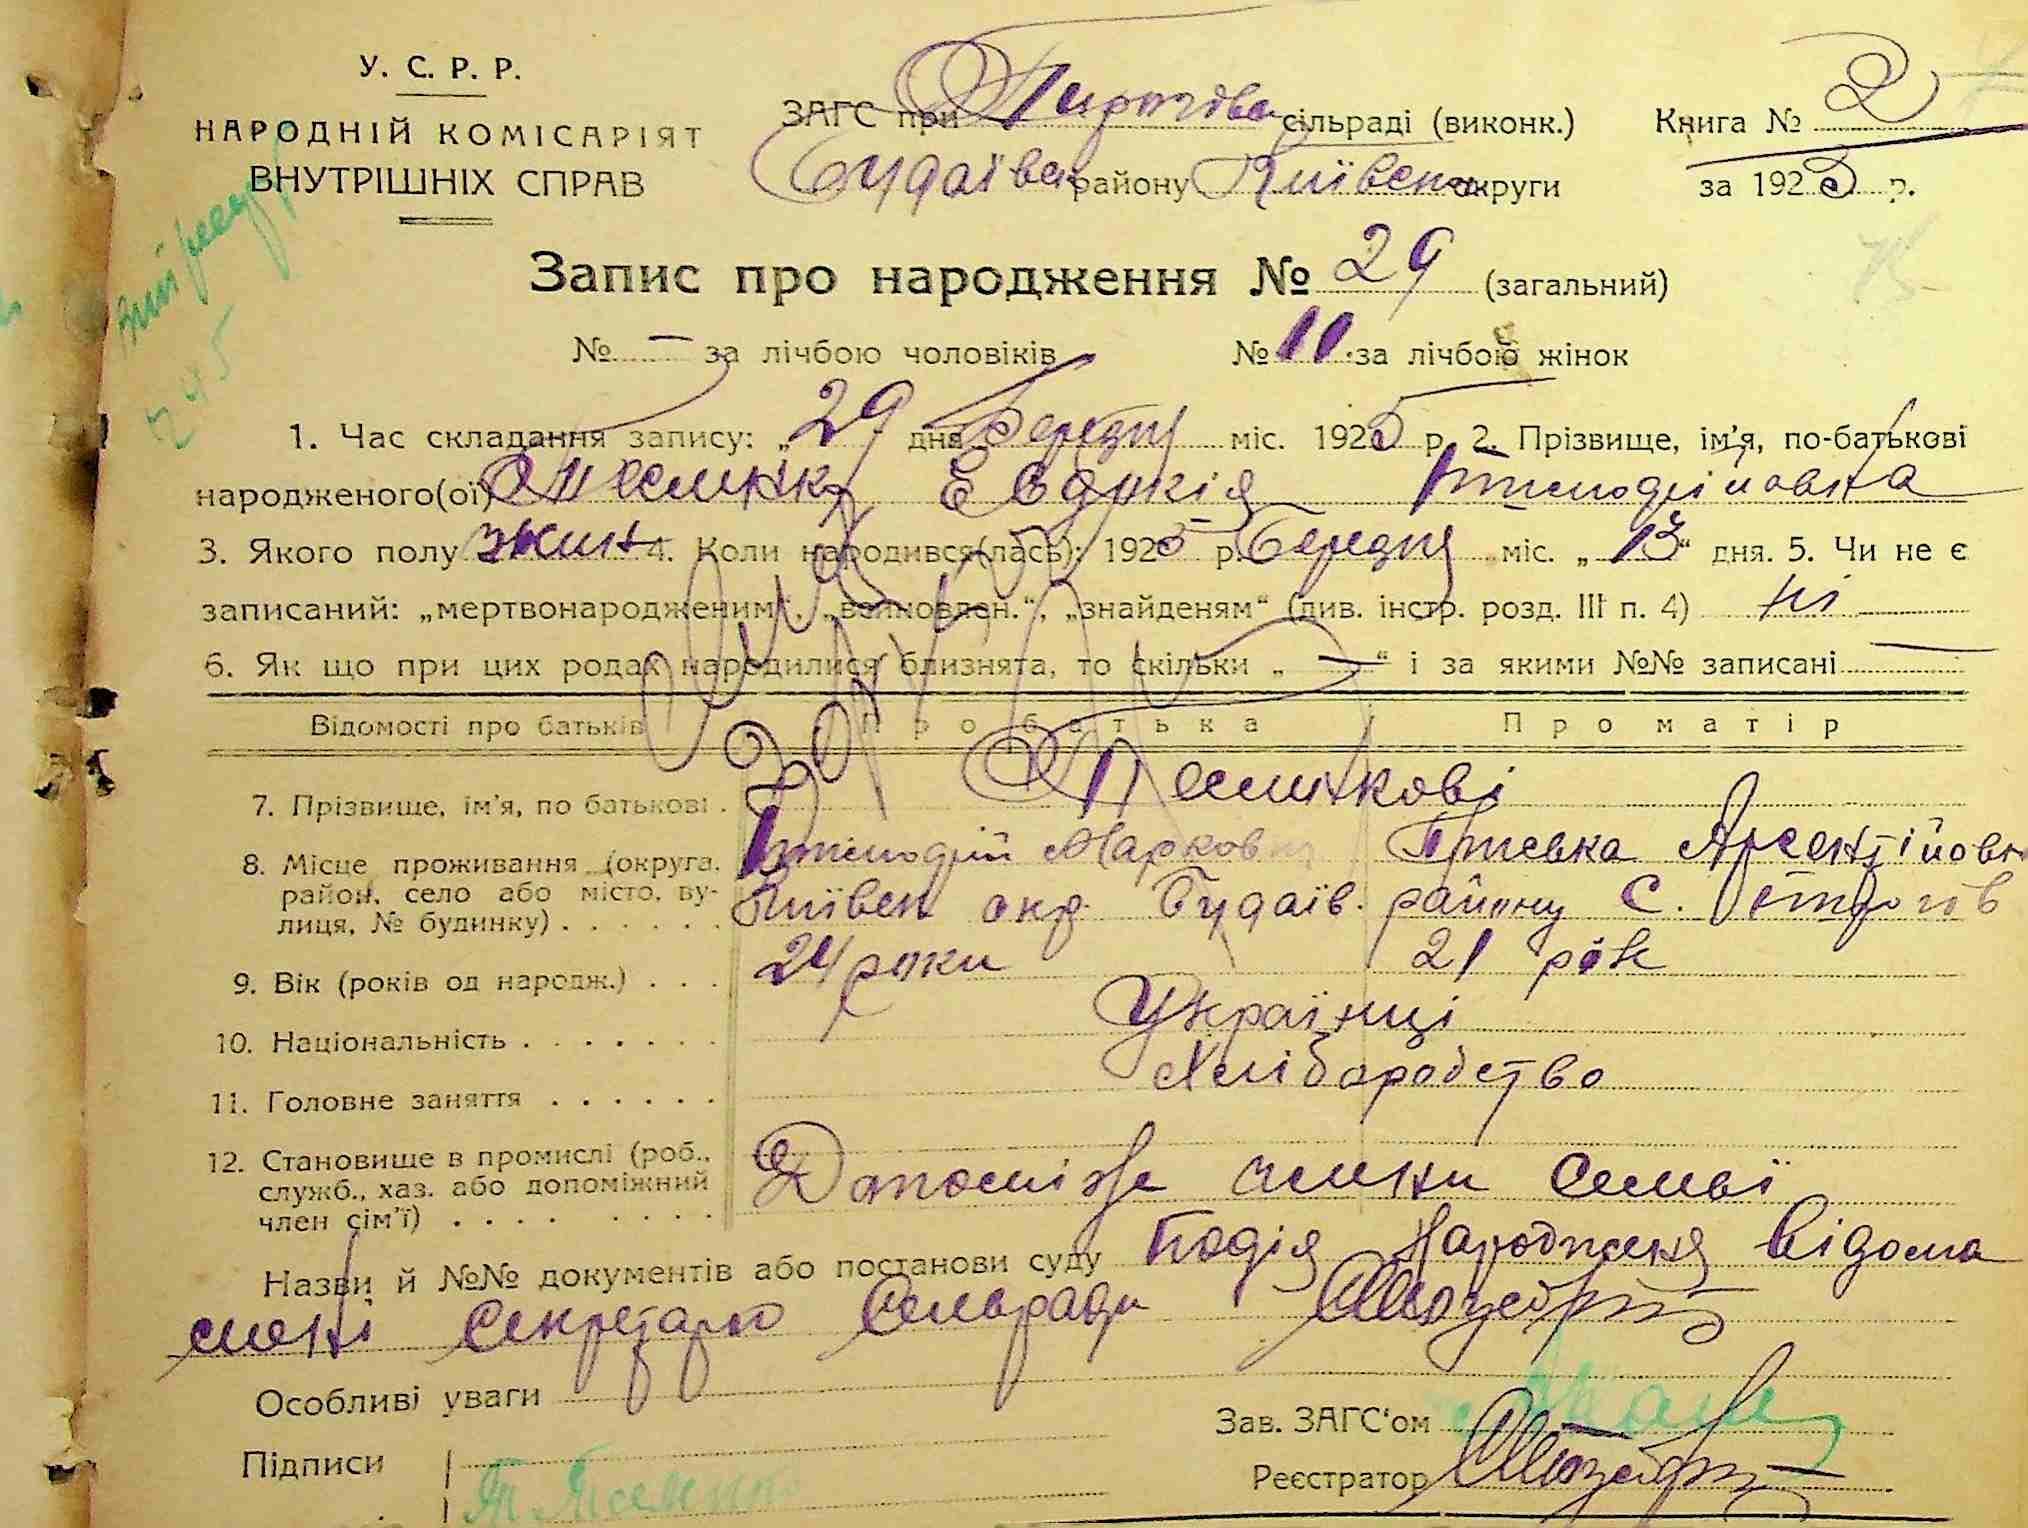 У. С. Р. Р.
НАРОДНІЙ КОМІСАРІЯТ
ВНУТРІШНІХ СПРАВ
ЗАГС при Пирогівск сільраді (виконк.)
Будаївск району Київськ округи
Книга № 2
за 1925 р.
Запис про народження № 29 (загальний)
№ — за лічбою чоловіків № 11 за лічбою жінок
1. Час складання запису: „29 дня Березня міс. 1925 р. 2. Прізвище, ім'я, по-батькові
народженого(ої) Евдокія
3. Якого полу жин 4. Коли народився(лась): 1925 р. Березня міс. „13“ дня. 5. Чи не є
записаний: „мертвонародженим“, „знайденям“ (див. інстр. розд. III п. 4) ні
6. Як що при цих родах народилися близнята, то скільки „—“ і за якими №№ записані —
Відомості про батьків Про батька Про матір
7. Прізвище, ім'я, по батькові
8. Місце проживання (округа, Маркович Пріська Арсентійовн
район, село або місто, ву- Київськ окр. Будаїв. району С.
лиця, № будинку)
9. Вік (років од народж.) 24 роки 21 рік
10. Національність Українці
11. Головне заняття Хлібаробство
12. Становище в промислі (роб.,
служб., хаз. або допоміжний
член сім'ї) члени семьї
Назви й №№ документів або постанови суду Подія народженя відома
мені секретарю Сельради
Особливі уваги
Підписи
Зав. ЗАГС'ом
Реєстратор